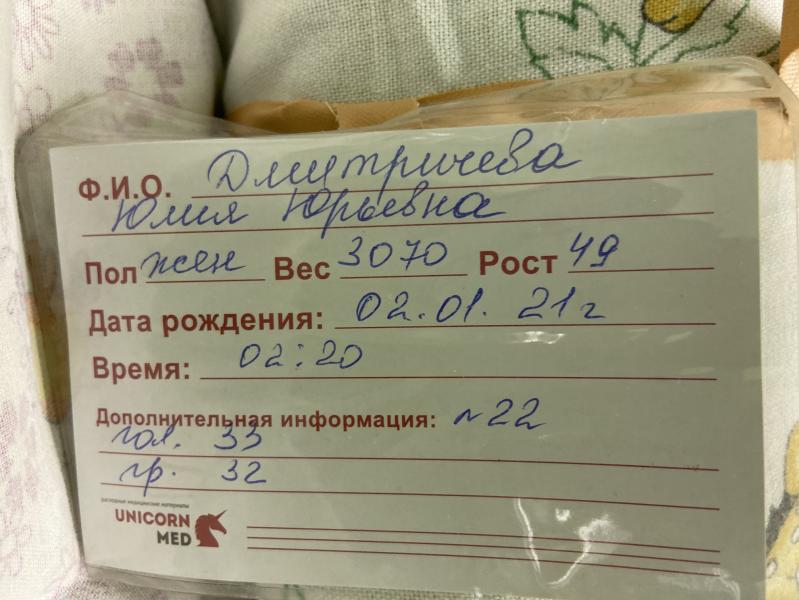 Ф.И.О. Дмитричева
Юлия Юрьевна
Пол жен Вес 3070 Рост 49
Дата рождения: 02.01.21г
Время: 02:20
Дополнительная информация: №22
гол. 33
гр. 32
расходные медицинские материалы
UNICORN
MED